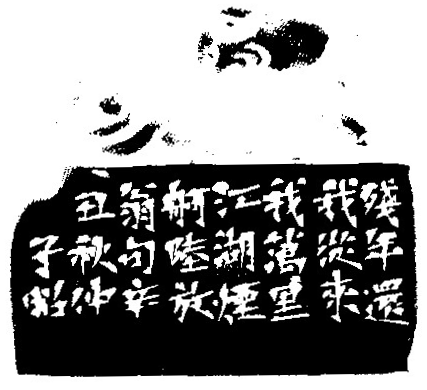 殘年還
我從來
我萬里
江湖煙
舸陸放
翁句辛
丑秋仲
子